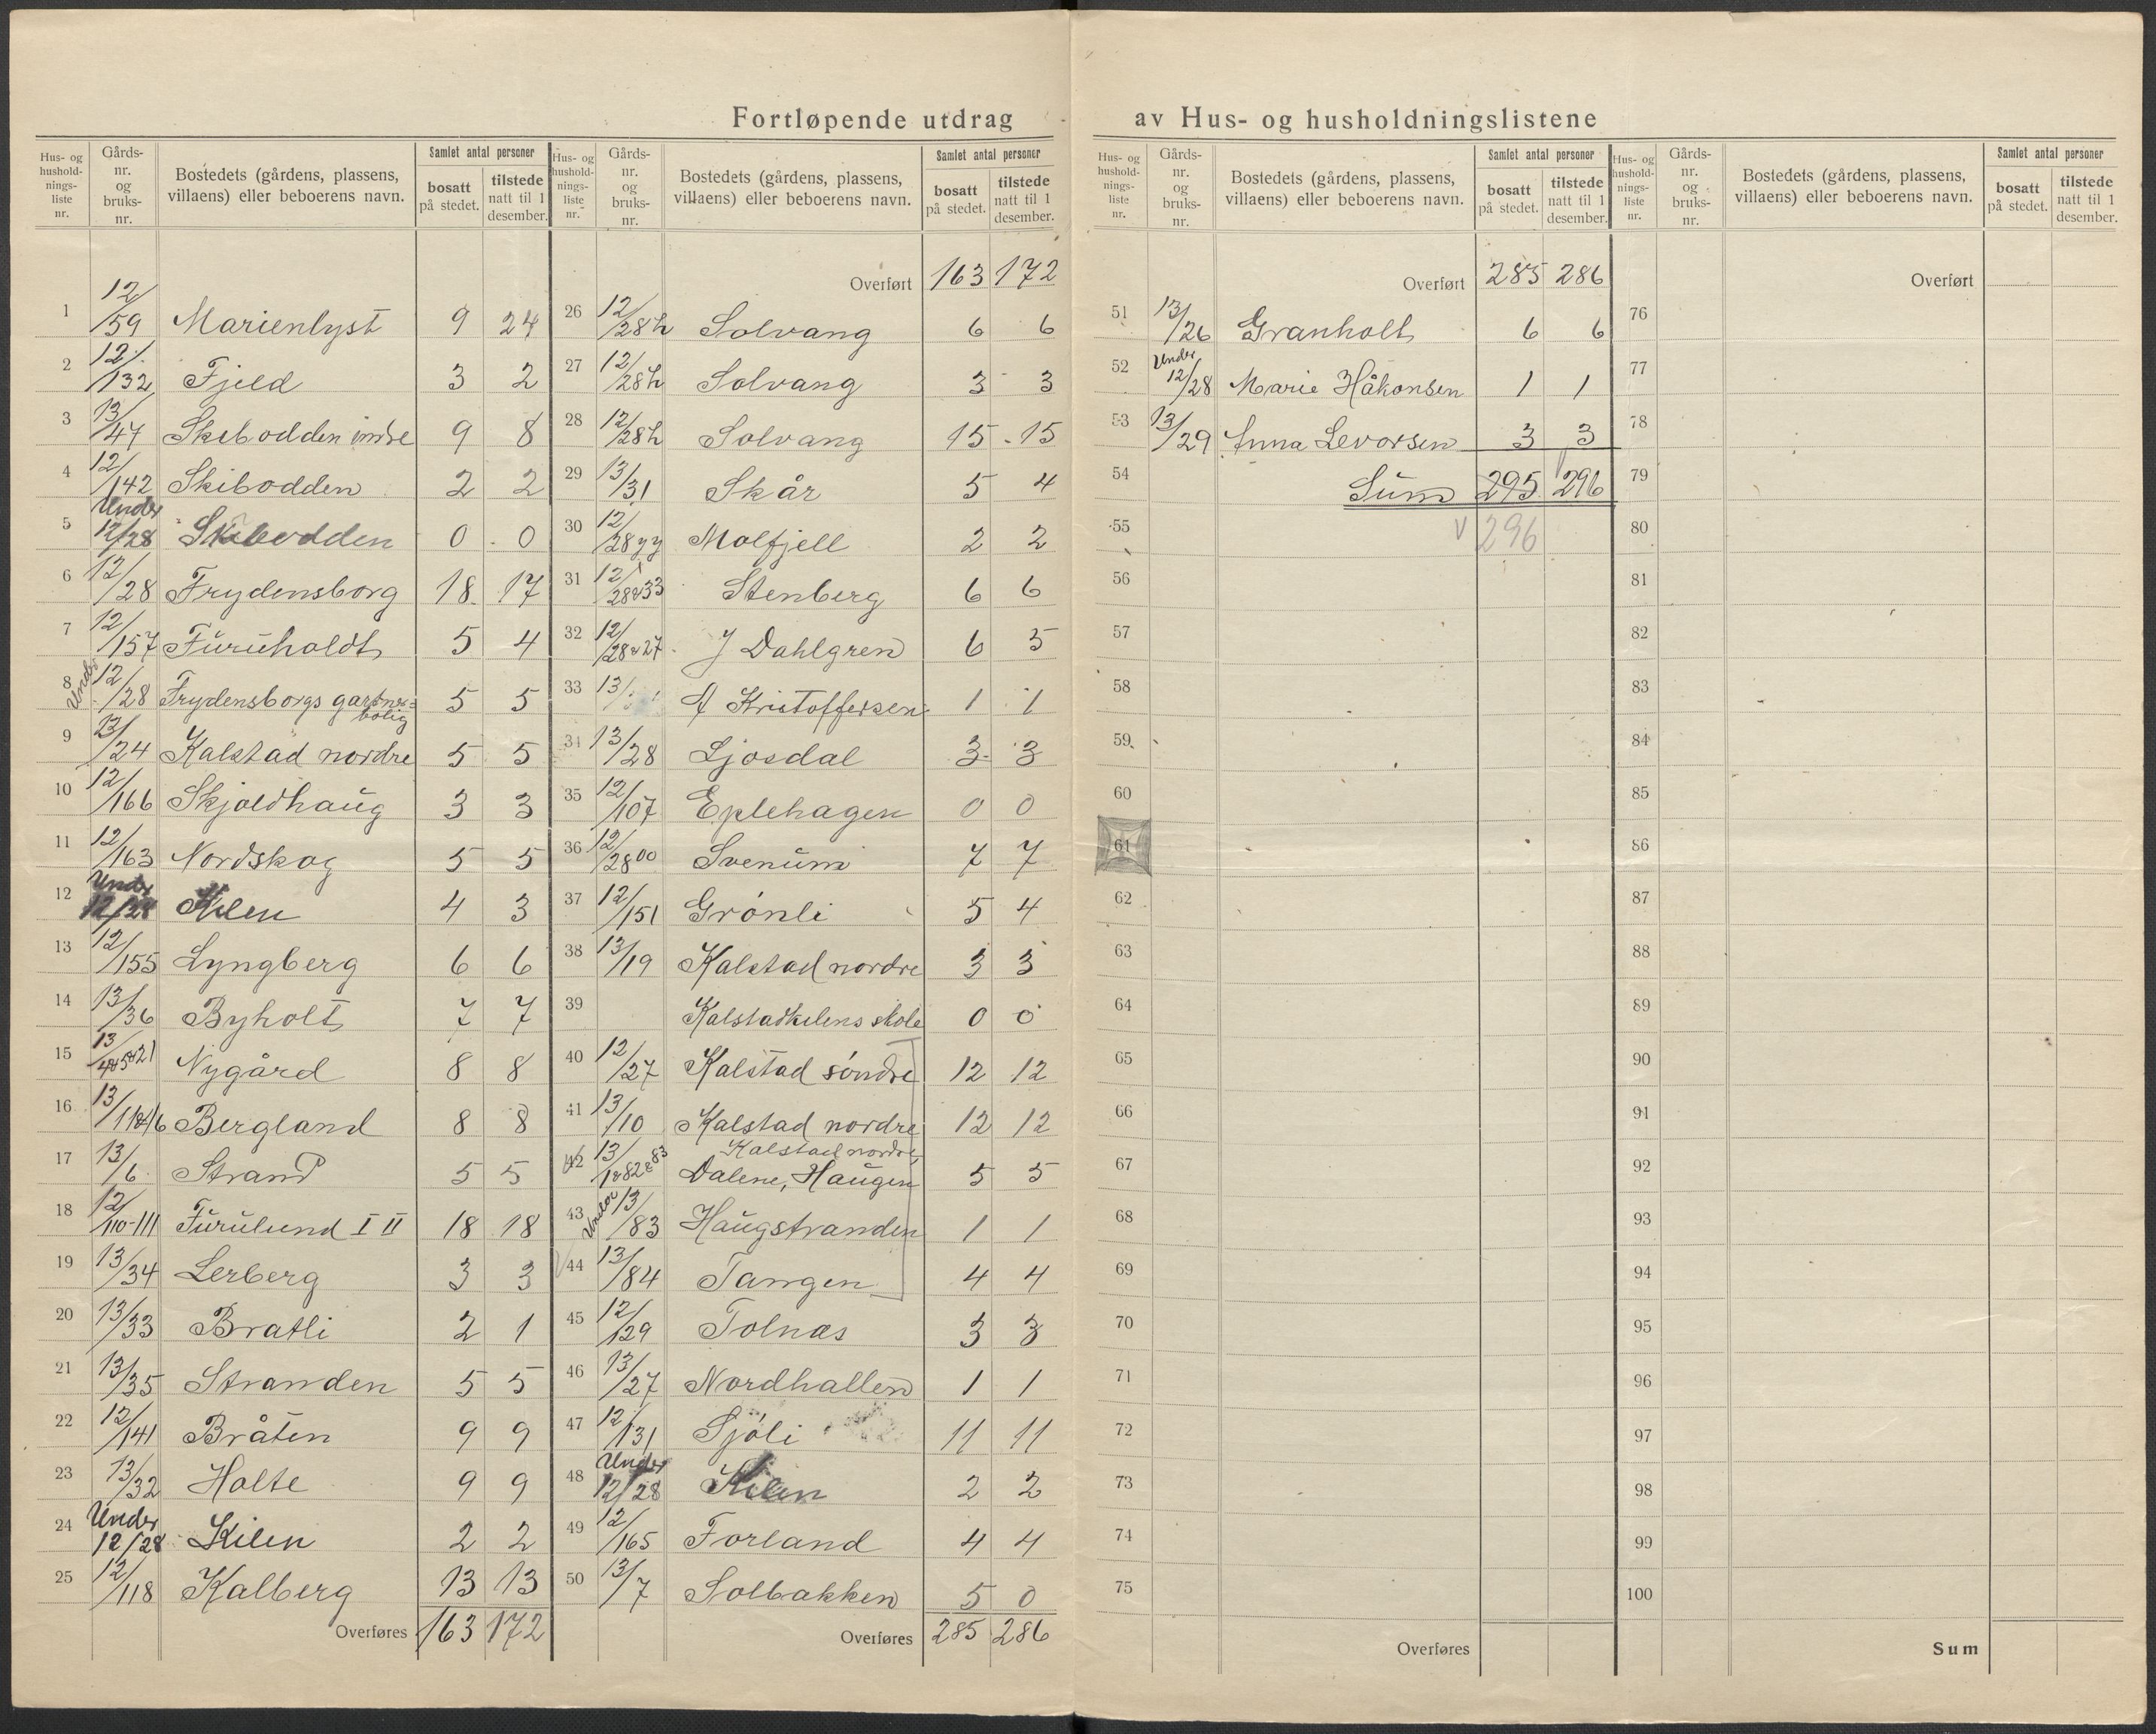 Fortløpende utdrag av Hus- og husholdningslistene
Hus- og husholdnings-liste nr. Gårds-nr. og bruks-nr. Bostedets (gårdens, plassens, villaens) eller beboerens navn. Samlet antal personer bosatt på stedet. tilstede natt til 1 desember.
1 12/59 Marienlyst 9 24
2 12/132 Fjeld 3 2
3 13/47 Skibodden indre 9 8
4 12/142 Skibodden 2 2
5 Under 12/28 Skibodden 0 0
6 12/28 Frydensborg 18 17
7 12/157 Furuholdt 5 4
8 Under 12/28 Frydensborgs gartner=
bolig 5 5
9 13/24 Kalstad nordre 5 5
10 12/166 Skjoldhaug 3 3
11 12/163 Nordskog 5 5
12 Under 12/28 Kilen 4 3
13 12/155 Lyngberg 6 6
14 13/36 Byholt 7 7
15 13/ Nygård 8 8
16 13/ Bergland 8 8
17 13/6 Strand 5 5
18 12/110-111 Furulund I II 18 18
19 13/34 Lerberg 3 3
20 13/33 Bratli 2 1
21 13/35 Stranden 5 5
22 12/141 Bråten 9 9
23 13/32 Holte 9 9
24 Under 12/28 Kilen 2 2
25 12/118 Kalberg 13 13
Overføres 163 172
Hus- og husholdnings-liste nr. Gårds-nr. og bruks-nr. Bostedets (gårdens, plassens, villaens) eller beboerens navn. Samlet antal personer bosatt på stedet. tilstede natt til 1 desember.
Overført 163 172
26 12/28h Solvang 6 6
27 12/28h Solvang 3 3
28 12/28h Solvang 15 15
29 13/31 Skår 5 4
30 12/28yy Molfjell 2 2
31 12/28&33 Stenberg 6 6
32 12/28&27 J Dahlgren 6 5
33 13/ A Kristoffersen 1 1
34 13/28 Ljosdal 3 3
35 12/107 Eplehagen 0 0
36 12/28oo Svenum 7 7
37 12/151 Grönli 5 4
38 13/19 Kalstad nordre 3 3
39 Kalstadkilens skole 0 0
40 12/27 Kalstad söndre 12 12
41 13/10 Kalstad nordre 12 12
42 13/1&82&83 Kalstad nordre,
Dalene, Haugen 5 5
43 Under 13/83 Haugstranden 1 1
44 13/84 Tangen 4 4
45 12/129 Tolnas 3 3
46 13/27 Nordhallen 1 1
47 12/131 Sjöli 11 11
48 Under 12/28 Kilen 2 2
49 12/165 Forland 4 4
50 13/7 Solbakken 5 0
Overføres 285 286
Hus- og husholdnings-liste nr. Gårds-nr. og bruks-nr. Bostedets (gårdens, plassens, villaens) eller beboerens navn. Samlet antal personer bosatt på stedet. tilstede natt til 1 desember.
Overført 285 286
51 13/26 Granholt 6 6
52 Under 12/28 Marie Håkonsen 1 1
53 13/29 Anna Levorsen 3 3
54 Sum 295 296
55 V 296
56
57
58
59
60
61
62
63
64
65
66
67
68
69
70
71
72
73
74
75
Overføres
Hus- og husholdnings-liste nr. Gårds-nr. og bruks-nr. Bostedets (gårdens, plassens, villaens) eller beboerens navn. Samlet antal personer bosatt på stedet. tilstede natt til 1 desember.
Overført
76
77
78
79
80
81
82
83
84
85
86
87
88
89
90
91
92
93
94
95
96
97
98
99
100
Sum